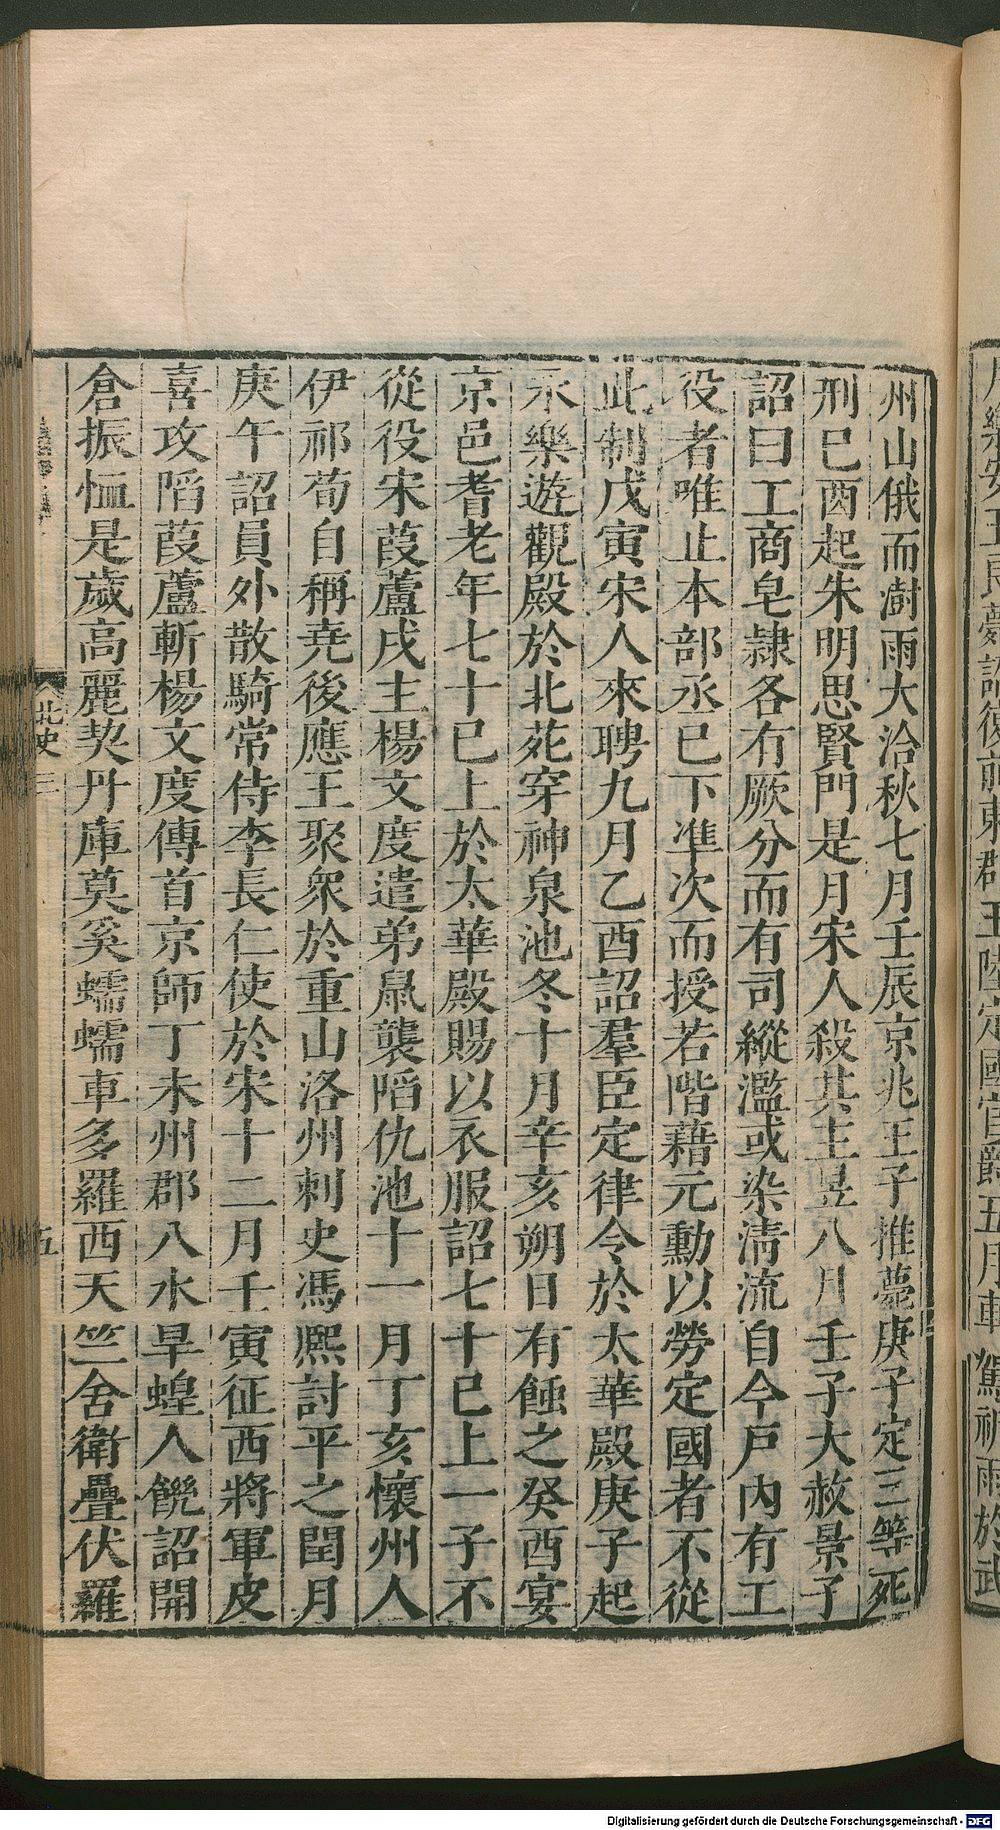 州山俄而澍雨大洽秋七月壬辰京兆王子推薨庚子定三等死
刑己酉起朱明思賢門是月宋人殺其主昱八月壬子大赦景子
詔曰工商皂隷各有厥分而有司縱濫或染清流自今戸內有工
役者唯止本部丞已下準次而授若階藉元勳以勞定國者不從
此制戊寅宋人來聘九月乙酉詔羣臣定律令於太華殿庚子起
永樂遊觀殿於北苑穿神泉池冬十月辛亥朔日有蝕之癸酉宴
京邑耆老年七十已上於太華殿賜以衣服詔七十已上一子不
從役宋葭蘆戍主楊文度遣弟鼠襲䧟仇池十一月丁亥懷州人
伊祁苟自稱堯後應王聚衆於重山洛州刺史馮熙討平之閏月
庚午詔員外散騎常侍李長仁使於宋十二月壬寅征西將軍皮
喜攻䧟葭蘆斬楊文度傳首京師丁未州郡八水旱蝗人饑詔開
倉振恤是歲高麗契丹庫莫奚蠕蠕車多羅西天竺舍衛疊伏羅
北史三
五
Digitalisierung gefördert durch die Deutsche Forschungsgemeinschaft - DFG